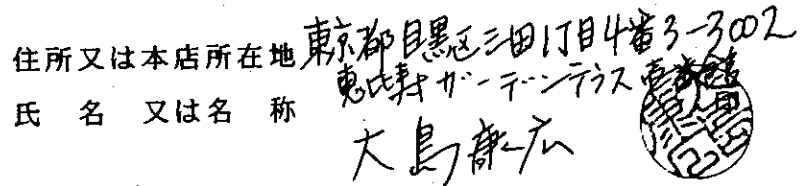 住所又は本店所在地 東京都目黒区三田1丁目4番3-3002
恵比寿ガーデンテラス壱番館
氏名又は名称
大島康広